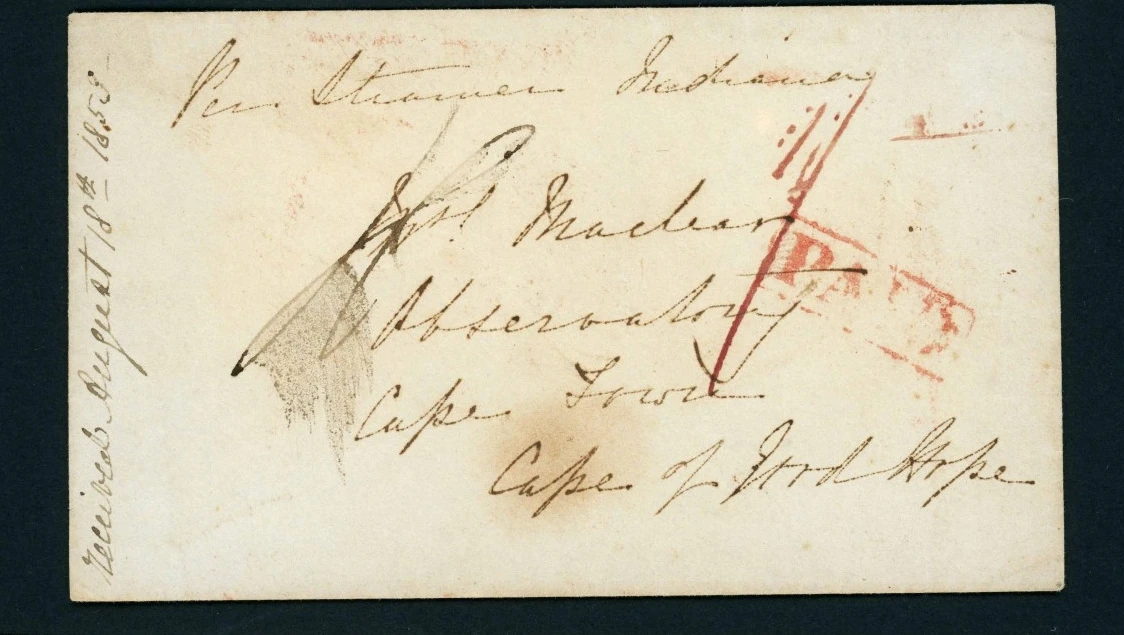 Per Steamer Indiana
Mrs Maclear
Observatory
Cape Town
Cape of Good Hope
PAID
received August 18th 1853